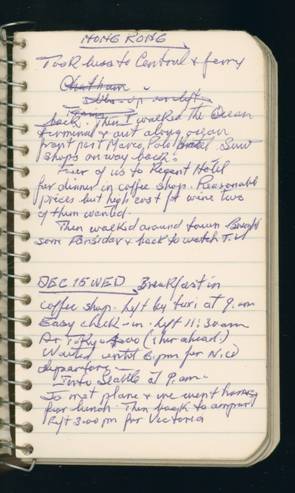 HONG KONG
Took bus to Central & ferry
Chatham
back. Then I walked the Ocean
terminal & out along ocean
front past Marco Polo Hotel.
shops on way back.
of us to Regent Hotel
for dinner in coffee shop. Reasonable
prices but high cost for wine two
of them wanted.
Then walked around town. Bought
som & back to watch T.V
DEC 15 WED Breakfast in
coffee shop. left by taxi at 9 am
Easy check-in. left 11:30 am
Ar. (1 hr ahead)
Waited until 6 pm for
departure
Into Seattle at 9 am.
Jo met plane & we went home
for lunch. Then back to airport
left 3:00 pm for Victoria